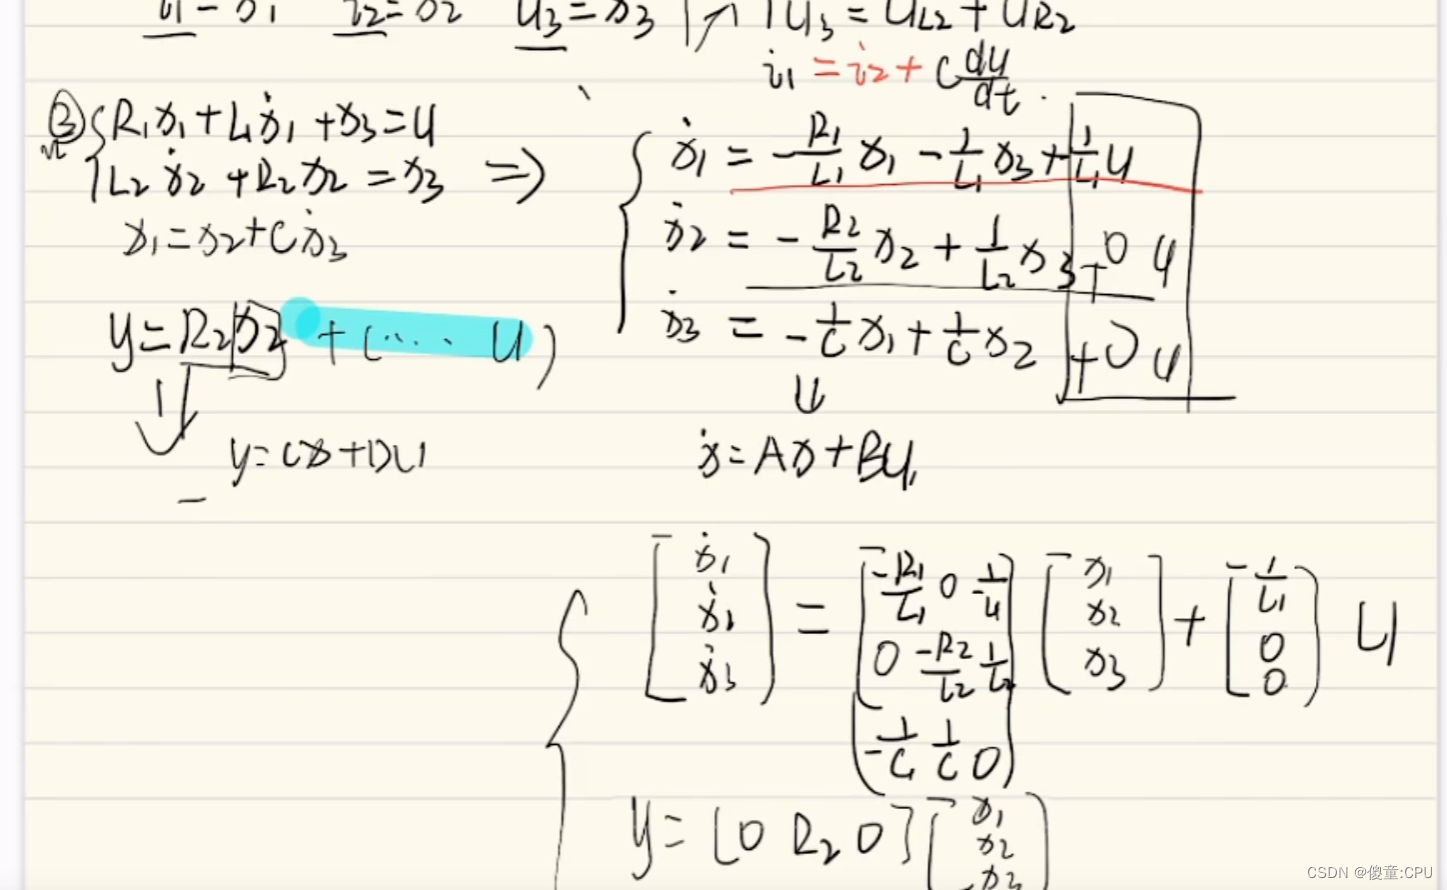 i₁ = x₁  i₂ = x₂  u₃ = x₃
u₃ = u_L2 + u_R2
i₁ = i₂ + C du/dt.
③ R₁x₁ + L₁ẋ₁ + x₃ = u
L₂ẋ₂ + R₂x₂ = x₃ ⇒
x₁ = x₂ + Cẋ₃
ẋ₁ = -R₁/L₁ x₁ - 1/L₁ x₃ + 1/L₁ u
ẋ₂ = -R₂/L₂ x₂ + 1/L₂ x₃ + 0 u
ẋ₃ = -1/C x₁ + 1/C x₂ + 0 u
y = R₂x₂ + (... u)
y = Cx + Du
ẋ = Ax + Bu
[ẋ₁ ẋ₂ ẋ₃] = [-R₁/L₁ 0 -1/L₁; 0 -R₂/L₂ 1/L₂; -1/C 1/C 0] [x₁ x₂ x₃] + [1/L₁ 0 0] u
y = [0 R₂ 0] [x₁ x₂ x₃]
CSDN @傻童:CPU